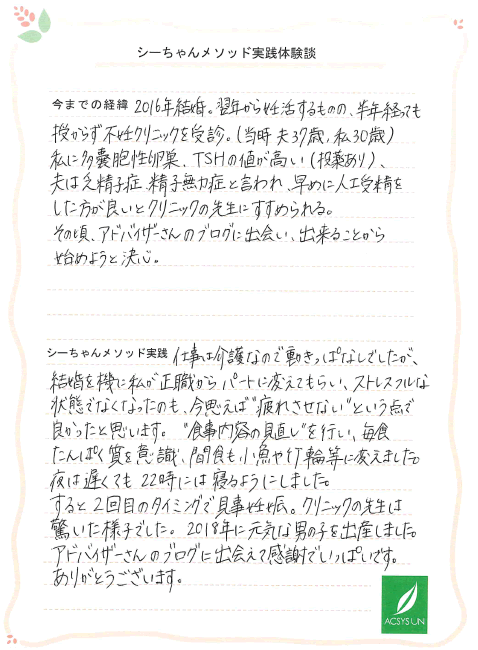 シーちゃんメソッド実践体験談
今までの経緯 2016年結婚。翌年から妊活するものの、半年経っても
授からず不妊クリニックを受診。(当時 夫37歳,私30歳)
私に多嚢胞性卵巣、TSHの値が高い(投薬あり)、
夫は乏精子症、精子無力症と言われ、早めに人工受精を
した方が良いとクリニックの先生にすすめられる。
その頃、アドバイザーさんのブログに出会い、出来ることから
始めようと決心。
シーちゃんメソッド実践 仕事は介護なので動きっぱなしでしたが、
結婚を機に私が正職からパートに変えてもらい、ストレスフルな
状態でなくなったのも、今思えば"疲れさせない"という点で
良かったと思います。"食事内容の見直し"を行い、毎食
たんぱく質を意識、間食も小魚や竹輪等に変えました。
夜は遅くても22時には寝るようにしました。
すると2回目のタイミングで見事妊娠。クリニックの先生は
驚いた様子でした。2018年に元気な男の子を出産しました。
アドバイザーさんのブログに出会えて感謝でいっぱいです。
ありがとうございます。
ACSYSUN